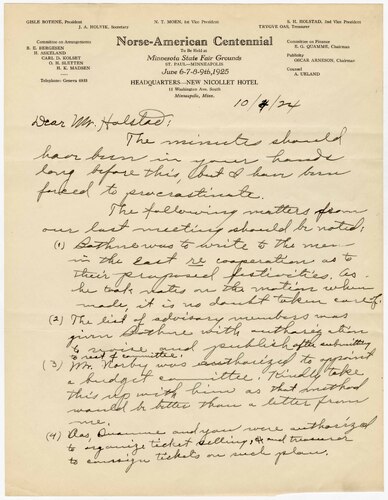 GISLE BOTHNE, President
N. T. MOEN, 1st Vice President
S. H. HOLSTAD, 2nd Vice President
J. A. HOLVIK, Secretary
TRYGVE OAS, Treasurer
Norse-American Centennial
To Be Held at
Minnesota State Fair Grounds
ST. PAUL—MINNEAPOLIS
June 6-7-8-9th, 1925
HEADQUARTERS—NEW NICOLLET HOTEL
12 Washington Ave. South
Minneapolis, Minn.
Committee on Arrangements
H. ASKELAND
CARL D. KOLSET
O. H. SLETTEN
H. K. MADSEN
Telephone: Geneva 4835
Committee on Finance
S. G. QUAMME, Chairman
Publicity
OSCAR ARNESON, Chairman
Counsel
A. UELAND
10/4/24
Dear Mr. Holstad:
The minutes should
have been in your hands
long before this, but I have been
forced to procrastinate.
The following matters from
our last meeting should be noted:
(1) Bothne was to write to the men
in the east re cooperation as to
their proposed festivities. As
he took notes on the motion when
made, it is no doubt taken care of.
(2) The list of advisory members was
given Bothne with authorization
to revise and publish after submitting
to rest of committee.
(3) Mr. Norby was authorized to appoint
a budget committee. Kindly take
this up with him as that method
would be better than a letter from
me.
(4) Oas, Quamme and you were authorized
to organize ticket selling, and treasurer
to consign tickets on such plan.